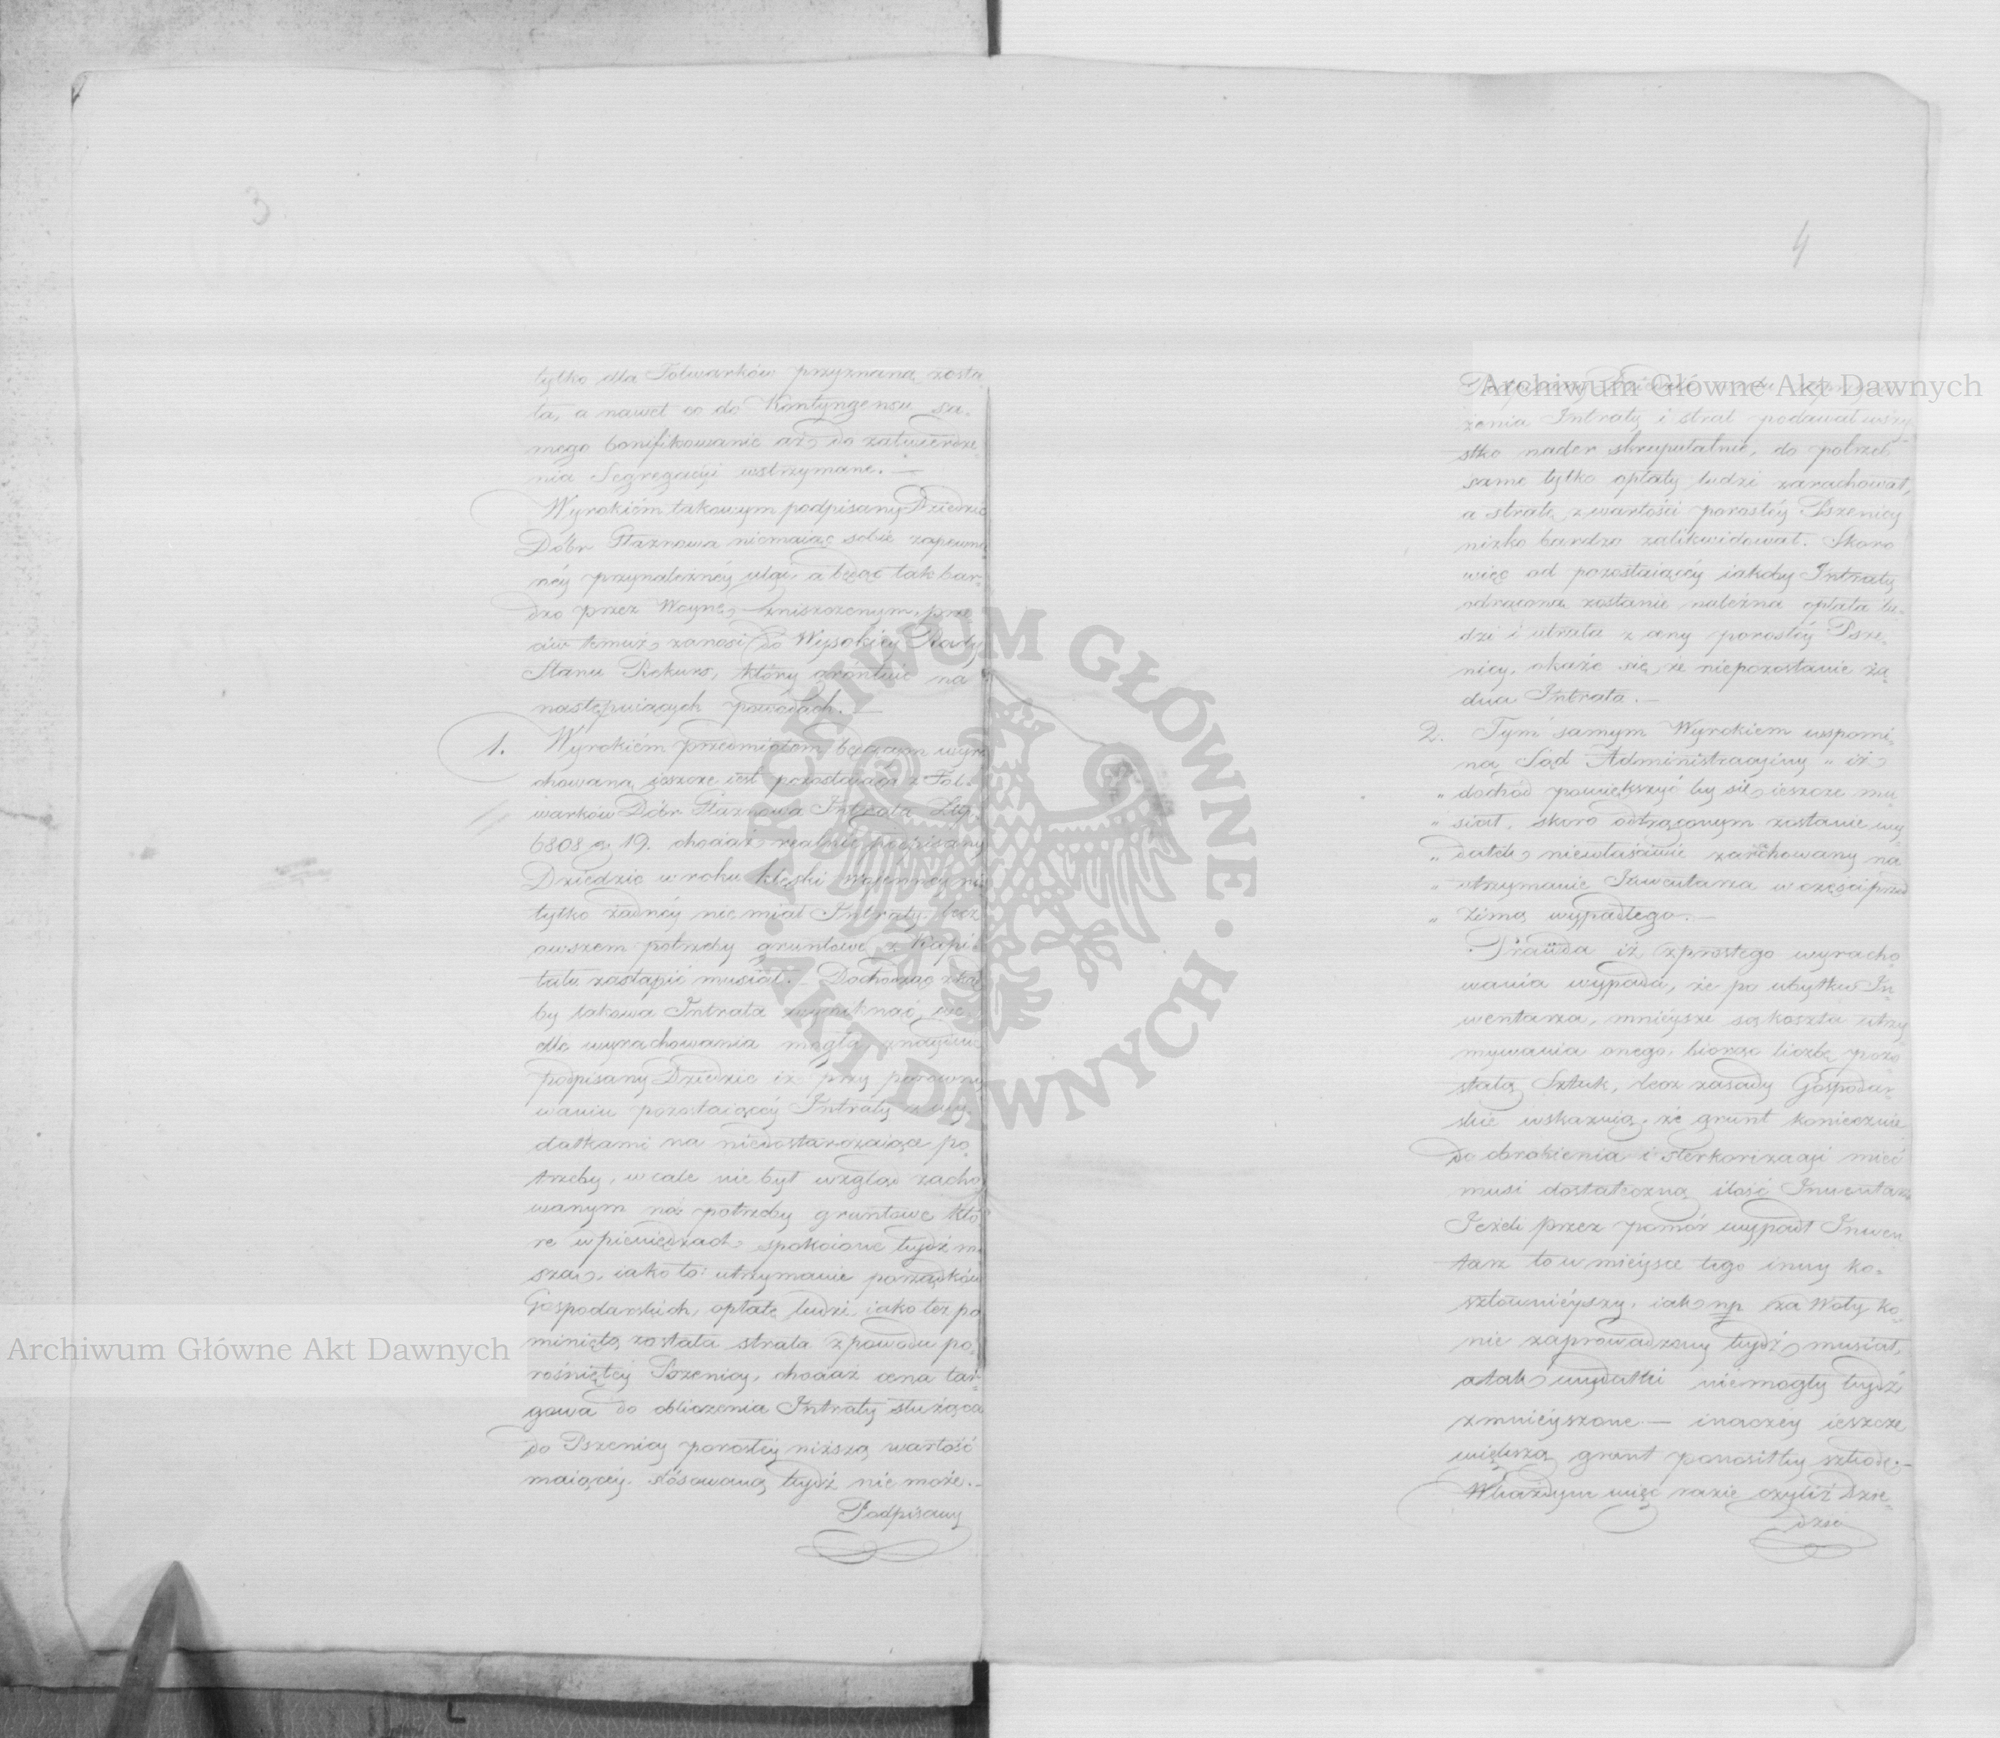 3
tylko dla Folwarków przyznaną zosta
ła, a nawet co do Kontyngensu sa-
mego bonifikowanie aż do zatwierdze
nia Segregacyi wstrzymane. —
Wyrokiem takowym podpisany Dziedzic
Dóbr Głaznowa niemaiąc sobie zapewnio
néy przynależnéy ulgi, a będąc tak bar-
dzo przez Woynę zniszczonym, prze
ciw temuż zanosi do Wysokiey Rady
Stanu Rekurs, który gruntuie na
następuiących powodach. —
1. Wyrokiem przedmiotem będącym wyra
chowaną ieszcze iest pozostaiąca z Fol-
warków Dóbr Głaznowa Intrata Złp.
6808 g. 19. chociaż realnie podpisany
Dziedzic w roku klęski wojennéy nie
tylko żadnéy nie miał Intraty, lecz
owszem potrzeby gruntowe z Kapi-
tału zastąpić musiał. — Dochodząc zkąd
by takowa Intrata wyniknąć we-
dle wyrachowania mogła, znayduie
podpisany Dziedzic iż przy porówny
waniu pozostaiącéy Intraty z wy-
datkami na niedostarczaiące po
trzeby, wcale nie był wzgląd zacho
wanym na potrzeby gruntowe któ
re w pieniędzach spokoione bydź mu
szą, iako to: utrzymanie porządków
Gospodarskich, opłatę ludzi, iako też po
miniętą została strata z powodu po-
rośniętéy Pszenicy, chociaż cena tar-
gowa do obliczenia Intraty służąca
do Pszenicy porosłéy niższą wartość
maiącéy stósowaną bydź nie może. —
Podpisany
4
żenia Intraty i strat podawał wszy
stko nader skrupulatnie, do potrzeb
same tylko opłaty ludzi zarachował,
a stratę z wartości porosłéy Pszenicy
nizko bardzo zalikwidował. Skoro
więc od pozostaiącéy iakoby Intraty
odrącona zostanie należna opłata lu-
dzi i utrata z ceny porosłéy Psze-
nicy, okaże się że niepozostanie ża
dna Intrata. —
2. Tym samym Wyrokiem wspomi-
na Sąd Administracyiny „ iż
„ dochód powiększyć by się ieszcze mu
„ siał, skoro odtrąconym zostanie wy
„ datek niewłaściwie zarachowany na
„ utrzymanie Inwentarza w części przed
„ zimą wypadłego. —
Prawda iż z prostego wyracho
wania wypada, że po ubytku In
wentarza, mnieysze są koszta utrzy
mywania onego, biorąc liczbę pozo
stałą Sztuk, lecz zasady Gospodar-
skie wskazuią, że grunt koniecznie
do obrobienia i sterkoryzacyi mieć
musi dostateczną ilość Inwentarza
Jeżeli przez pomór wypadł Inwen
tarz to w mieysce tego inny ko-
sztownieyszy, iak np za Woły ko
nie zaprowadzony bydź musiał,
a tak wydatki niemogły bydź
zmnieyszone — inaczéy ieszcze
większą grunt ponosiłby szkodę. —
W każdym więc razie czyliż Dzie-
dzic
Archiwum Główne Akt Dawnych
Archiwum Główne Akt Dawnych
ARCHIWUM GŁÓWNE · AKT DAWNYCH ·